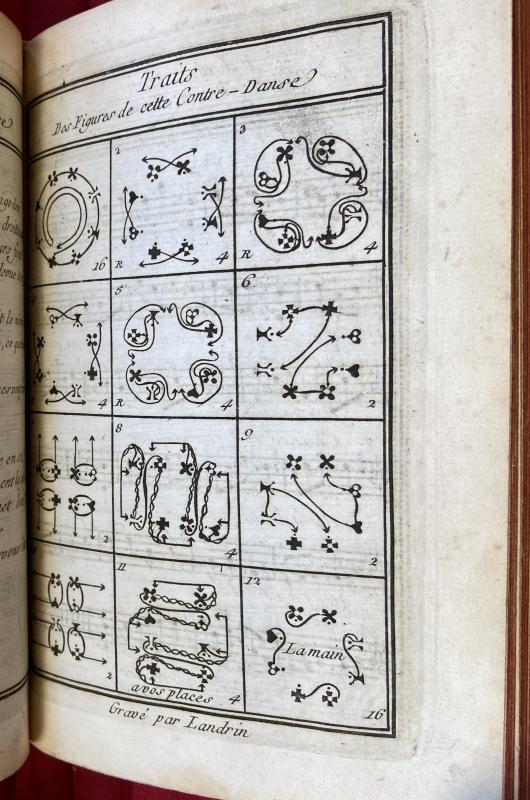 Traits
Des Figures de cette Contre-Danse
16
2
R
4
3
R
4
R
4
5
R
4
6
2
2
8
4
9
2
2
11
avos places
4
12
La main
16
Gravé par Landrin